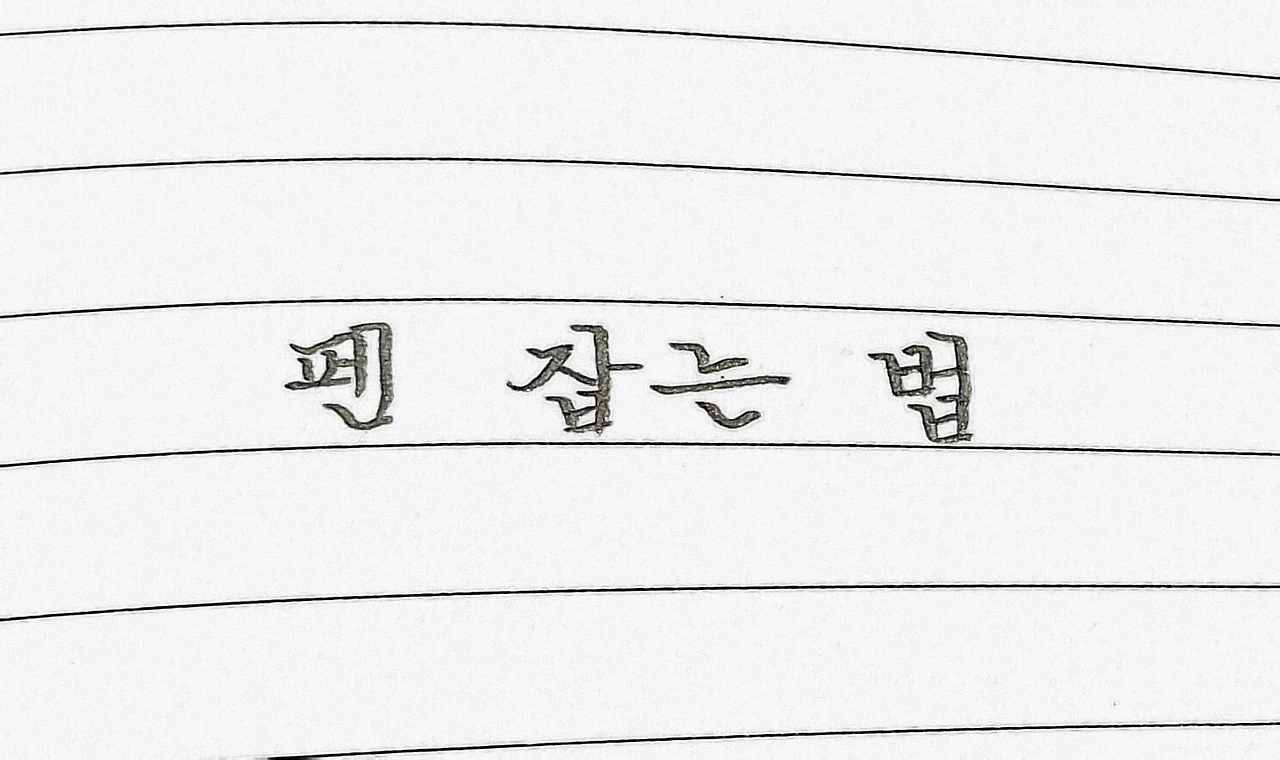 펜 잡는 법